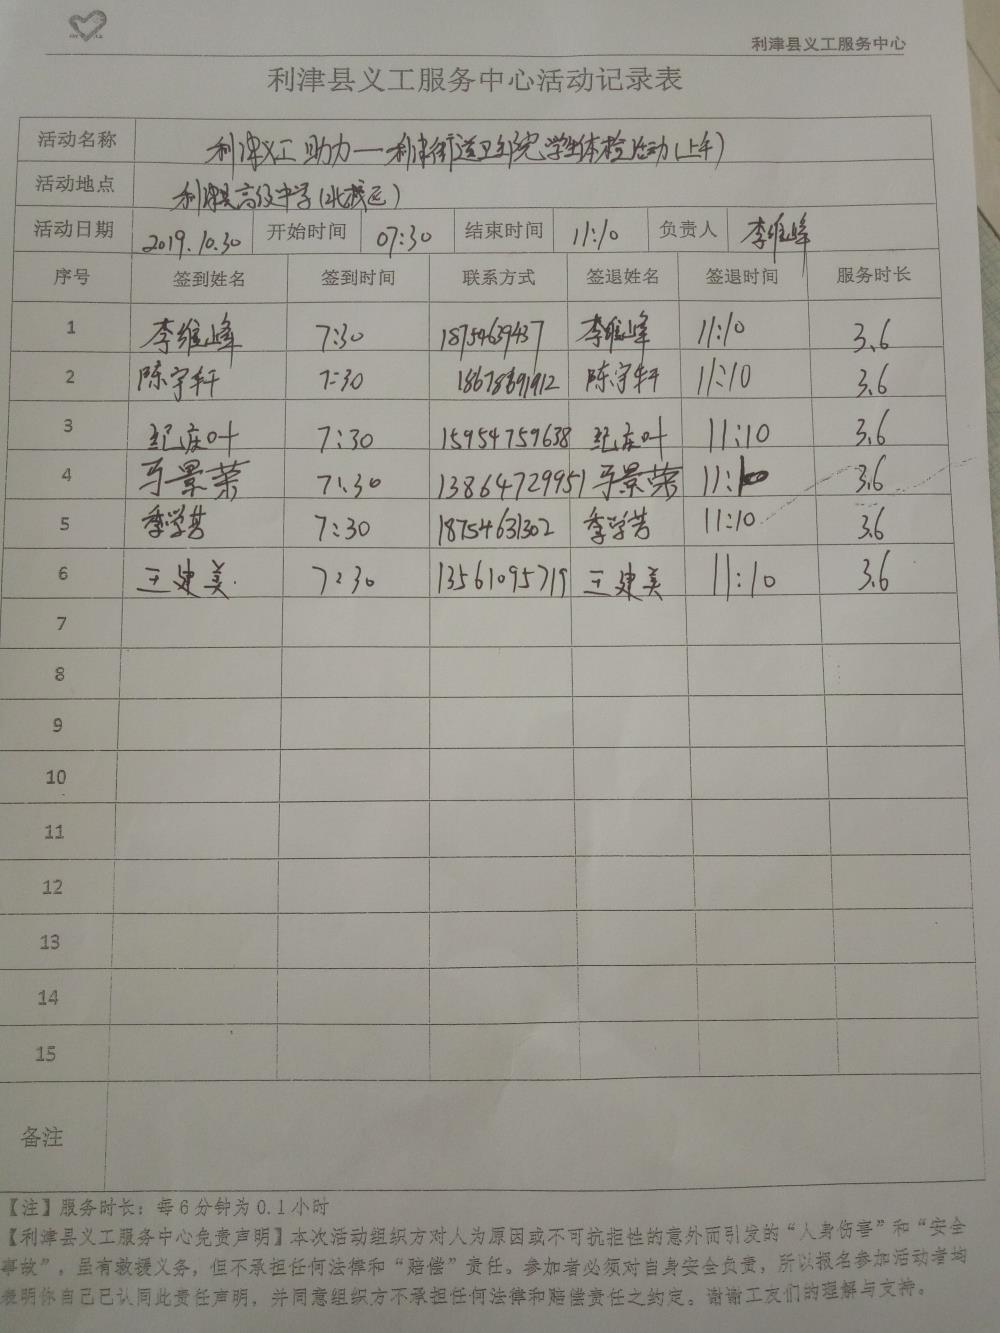 利津县义工服务中心
利津县义工服务中心活动记录表
活动名称 利津义工助力—利津街道卫生院学生体检活动(上午)
活动地点 利津县高级中学(北校区)
活动日期 2019.10.30 开始时间 07:30 结束时间 11:10 负责人 李维峰
序号 签到姓名 签到时间 联系方式 签退姓名 签退时间 服务时长
1 李维峰 7:30 18754639437 李维峰 11:10 3.6
2 陈宇轩 7:30 18678691912 陈宇轩 11:10 3.6
3 纪庆叶 7:30 15954759638 纪庆叶 11:10 3.6
4 于景荣 7:30 13864729951 于景荣 11:10 3.6
5 季学芸 7:30 18754631302 季学芸 11:10 3.6
6 王建美 7:30 13561095719 王建美 11:10 3.6
7
8
9
10
11
12
13
14
15
备注
【注】服务时长：每6分钟为0.1小时
【利津县义工服务中心免责声明】本次活动组织方对人为原因或不可抗拒性的意外而引发的“人身伤害”和“安全
事故”，虽有救援义务，但不承担任何法律和“赔偿”责任。参加者必须对自身安全负责，所以报名参加活动者均
表明你自己已认同此责任声明，并同意组织方不承担任何法律和赔偿责任之约定。谢谢工友们的理解与支持。